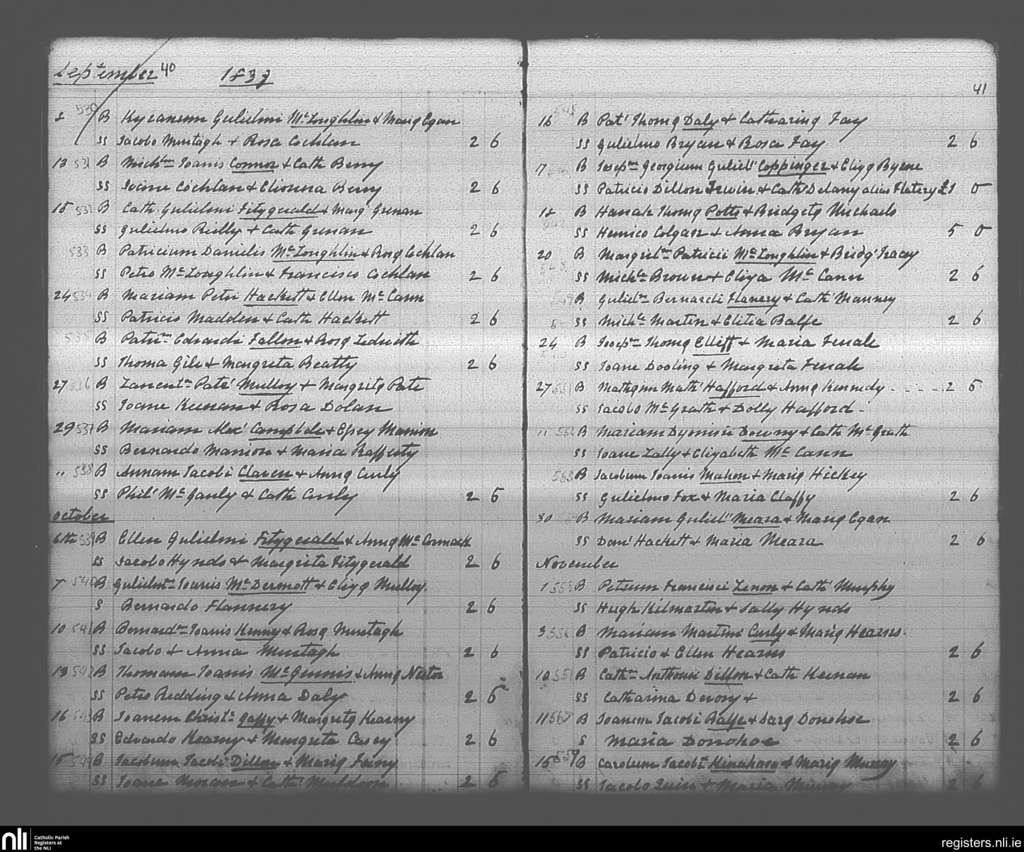 September 40 1837
8 530 B Hyeronem Gulielmi McLoughlin & Marg Egan
SS Jacobo Murtagh & Rosa Cochlan 2 6
13 531 B Michlm Joanis Connor & Cath Berry
SS Joane Cochlan & Elionora Berry 2 6
15 532 B Cath Gulielmi Fitzgerald & Marg Grenan
SS Gulielmo Reilly & Cath Grenan 2 6
533 B Patricium Danielis McLoughlin & Rosa Cochlan
SS Petro McLoughlin & Francisco Cochlan 2 6
24 534 B Mariam Petri Hackett & Ellen McCann
SS Patricio Madden & Cath Hackett 2 6
535 B Patrm Edvardi Fallon & Rosa Ledwith
SS Thoma Gile & Margreta Beatty 2 6
27 536 B Laurentm Patt Mulloy & Margreta Pate
SS Joane Keenan & Rosa Dolan
29 537 B Mariam Alex Campbele & Essey Manion
SS Bernardo Manion & Maria Rafferty
" 538 B Annam Jacobi Claven & Anna Curly
SS Phill McGauly & Cath Curly 2 6
October
6th 539 B Ellen Gulielmi Fitzgerald & Anna McCormack
SS Jacobo Hynds & Margreta Fitzgerald 2 6
7 540 B Gulielmm Joanis McDermott & Eliza Mulloy.
S Bernardo Flannery 2 6
10 541 B Bernardm Joanis Kenny & Rosa Murtagh
SS Jacobo & Anna Murtagh 2 6
13 542 B Thomam Joanis McGennis & Anna Nestor
SS Petro Redding & Anna Daly 2 6
16 543 B Joanem Christi Gaffy & Margreta Kearny
SS Edvardo Kearny & Margreta Casey 2 6
15 544 B Jacobum Jacobi Dillon & Maria Fainy
SS Joane Moran & Cath Muldoon 2 6
41
16 545 B Pat Thoma Daly & Catharina Fay
SS Gulielmo Bryan & Rosa Fay 2 6
17 B Josepm Georgium Guliell Coppinger & Eliza Byrne
SS Patricio Dillon Irwin & Cath Delany alias Flatery £1 0
18 B Hannah Thoma Potts & Bridgeta Michaels
SS Henrico Colgan & Anna Bryan 5 0
20 B Margretm Patricii McLoughlin & Bridgt Tracey
SS Michle Brown & Eliza McCann 2 6
B Gulielm Bernardi Flanery & Cath Manney
SS Michle Martin & Elitia Balfe 2 6
24 B Josepm Thoma Elliff & Maria Fenale
SS Joane Dooling & Margreta Fenale
27 551 B Mathgum Math Hafford & Anna Kennedy - - - - 2 6
SS Jacobo McGrath & Dolly Hafford -
" 552 B Mariam Dyonisii Downy & Cath McGrath
SS Joane Lally & Elizabeth McCann
553 B Jacobum Joanis Mahon & Maria Hickey
SS Gulielmo Fox & Maria Claffy 2 6
30 B Mariam Guliell Meara & Maria Egan
SS Danl Hackett & Maria Meara 2 6
November
1 555 B Petrum Francisci Lenon & Cath Murphy
SS Hugh Kilmartin & Sally Hynds
3 556 B Mariam Martini Curly & Maria Hearns.
SS Patricio & Ellen Hearns 2 6
10 557 B Cathm Anthonii Dillon & Cath Hernan
SS Catharina Devony & 2 6
11 558 B Joanem Jacobi Balfe & Sara Donohoe
S Maria Donohoe 2 6
15 559 B Carolum Jacobi Kinahan & Maria Murray
SS Jacobo Quin & Maria Murray 2 6
nli Catholic Parish Registers at the NLI
registers.nli.ie